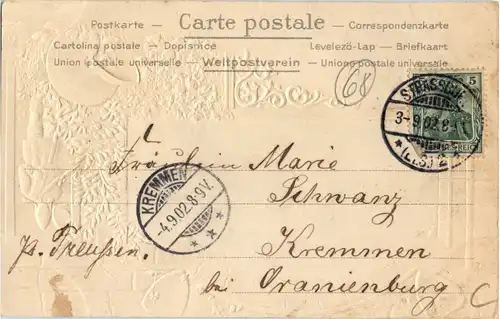 Postkarte — Carte postale — Correspondenzkarte
Cartolina postale — Dopisnice Levelező-Lap — Briefkaart
Union postale universelle — Weltpostverein — Unione postale universale
68
5
STRASSBURG
3-9.02.8-
* (ELS) 2 *
REICH
Fräulein Marie
Schwanz
KREMMEN
-4.9.02.8-9V.
* * *
p/a. Preussen. Kremmen
bei Oranienburg
C